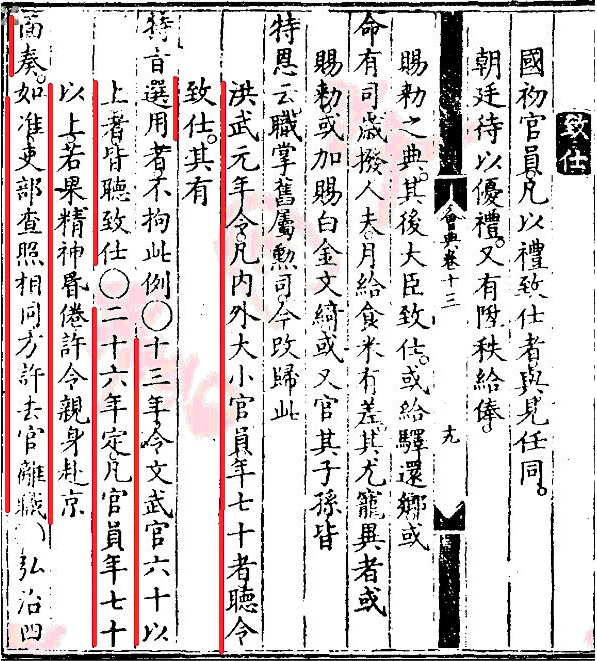 致仕
國初官員凡以禮致仕者與見任同。
朝廷待以優禮。又有陞秩給俸。
賜勑之典。其後大臣致仕。或給驛還鄉。或
會典卷十三
十九
命有司歲撥人夫。月給食米有差。其尤寵異者。或
賜勑。或加賜白金文綺。或又官其子孫。皆
特恩云。職掌舊屬勳司。今改歸此
洪武元年令。凡內外大小官員年七十者。聽令
致仕。其有
特旨選用者。不拘此例○十三年。令文武官六十以
上者皆聽致仕○二十六年定。凡官員年七十
以上。若果精神昬倦。許令親身赴京
面奏。如准。吏部查照相同。方許去官離職○弘治四